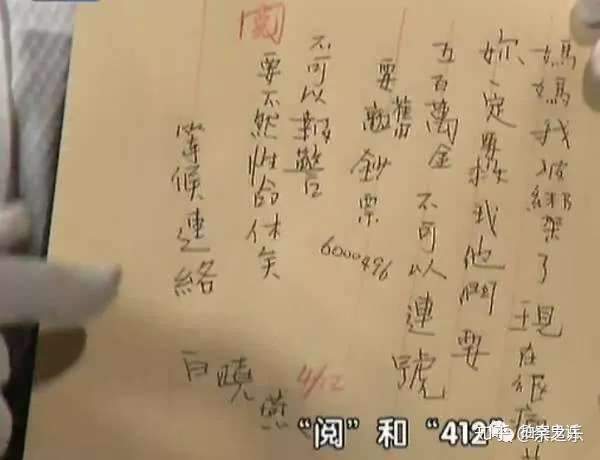 媽媽我被綁架了現在很痛苦
妳一定要救我他們要
五百萬金不可以連號
要舊鈔票
6000496
不可以報警
要不然性命休矣
閱
等候連絡
白曉燕
4/12
“阅”和“412”
知乎